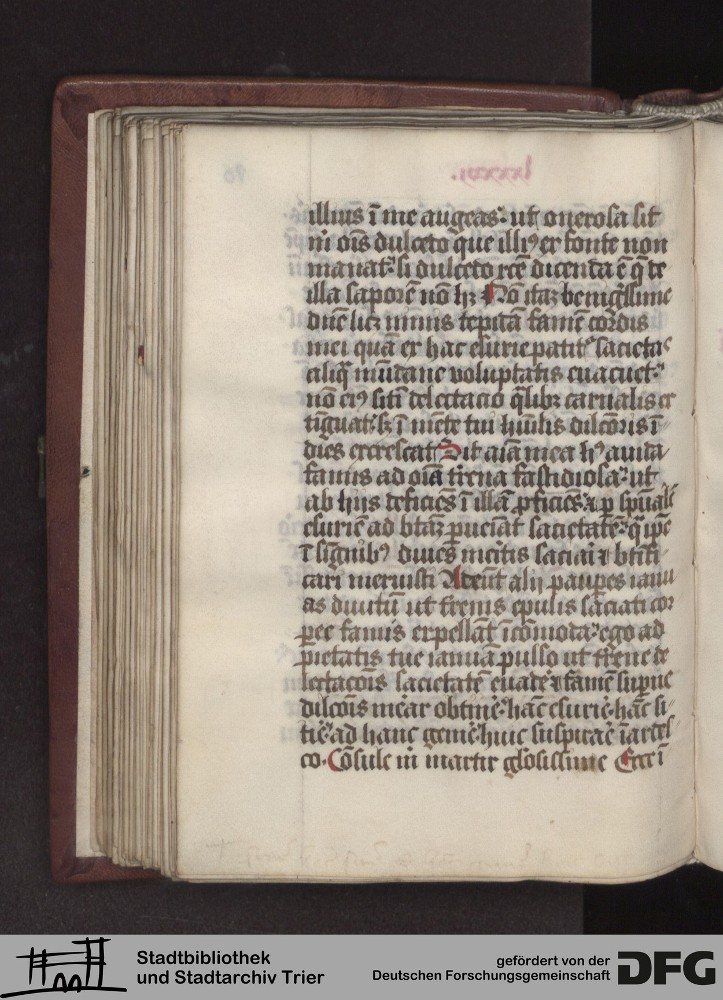 illius ī me augeas. ut onerosa sit
m̄ oīs dulceto que illi⁹ ex fonte non
manat. si dulceto rcē dicenda ē q̄ de
illa saporē nō hꝫ Nō itaꝫ benigͥssime
dn̄e licꝫ nimis tepidā famē cordis
mei quā ex hac esurie patit᷑ sacietas
aliq̄ mūdane voluptatis euacuet.
nō ei⁹ sitī delectacio q̄libꝫ carnalis ex
tīguat. sꝫ ī mēte tui hūilis dilcōis ī
dies excrescat Sit aīa mea h⁹ auida
famis ad oīa trēna fastidiosa. ut
ab hijs deficiēs ī illā ꝓficies ⁊ ꝑ spūalē
esuriē ad btāꝫ ꝑueiāt sacietatē. q̄ ip̄e
ī signib⁹ diues meitis saciai ⁊ btifi
cari meruisti Adeūt alij pauꝑes ianu
as diuitū ut trēnis epulis saciati cor
ꝑee famis expellāt īcōmoda. ego ad
pietatis tue ianuā pulso ut trēne de
lectacōis sacietatē euadē ⁊ famē suꝑne
dilcōis
hāc esuriē. hāc si
tiē. ad hanc gemē. huic suspirāē īardes
co. Cōsule m̄ martir gl̄osissime Ecce ī
Stadtbibliothek
und Stadtarchiv Trier
gefördert von der
Deutschen Forschungsgemeinschaft
DFG